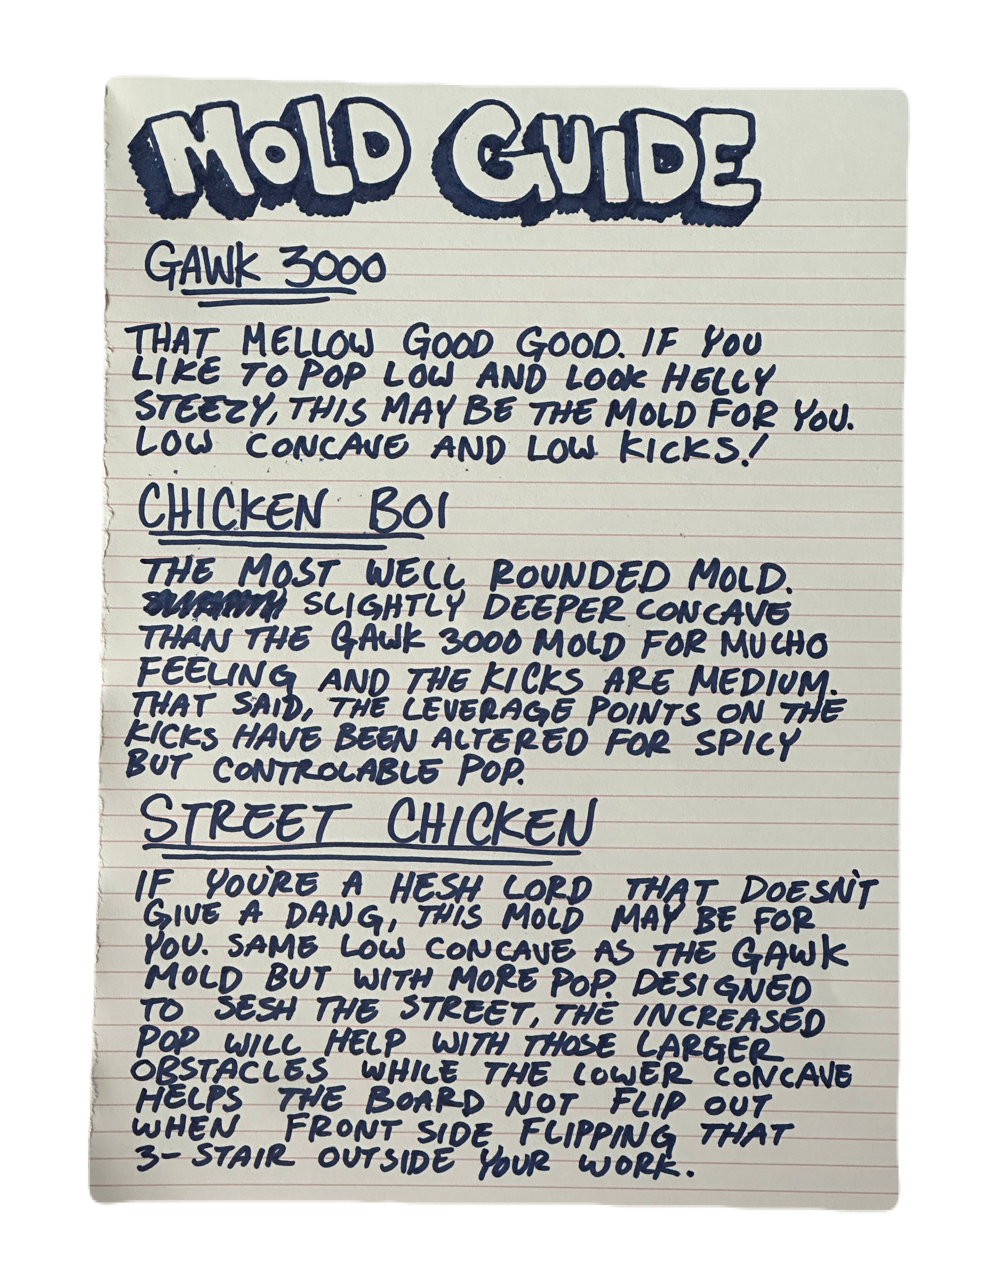 MOLD GUIDE
GAWK 3000
THAT MELLOW GOOD GOOD. IF YOU
LIKE TO POP LOW AND LOOK HELLY
STEEZY, THIS MAY BE THE MOLD FOR YOU.
LOW CONCAVE AND LOW KICKS!
CHICKEN BOI
THE MOST WELL ROUNDED MOLD.
SLIGHTLY DEEPER CONCAVE
THAN THE GAWK 3000 MOLD FOR MUCHO
FEELING AND THE KICKS ARE MEDIUM.
THAT SAID, THE LEVERAGE POINTS ON THE
KICKS HAVE BEEN ALTERED FOR SPICY
BUT CONTROLABLE POP.
STREET CHICKEN
IF YOU'RE A HESH LORD THAT DOESN'T
GIVE A DANG, THIS MOLD MAY BE FOR
YOU. SAME LOW CONCAVE AS THE GAWK
MOLD BUT WITH MORE POP. DESIGNED
TO SESH THE STREET, THE INCREASED
POP WILL HELP WITH THOSE LARGER
OBSTACLES WHILE THE LOWER CONCAVE
HELPS THE BOARD NOT FLIP OUT
WHEN FRONT SIDE FLIPPING THAT
3-STAIR OUTSIDE YOUR WORK.